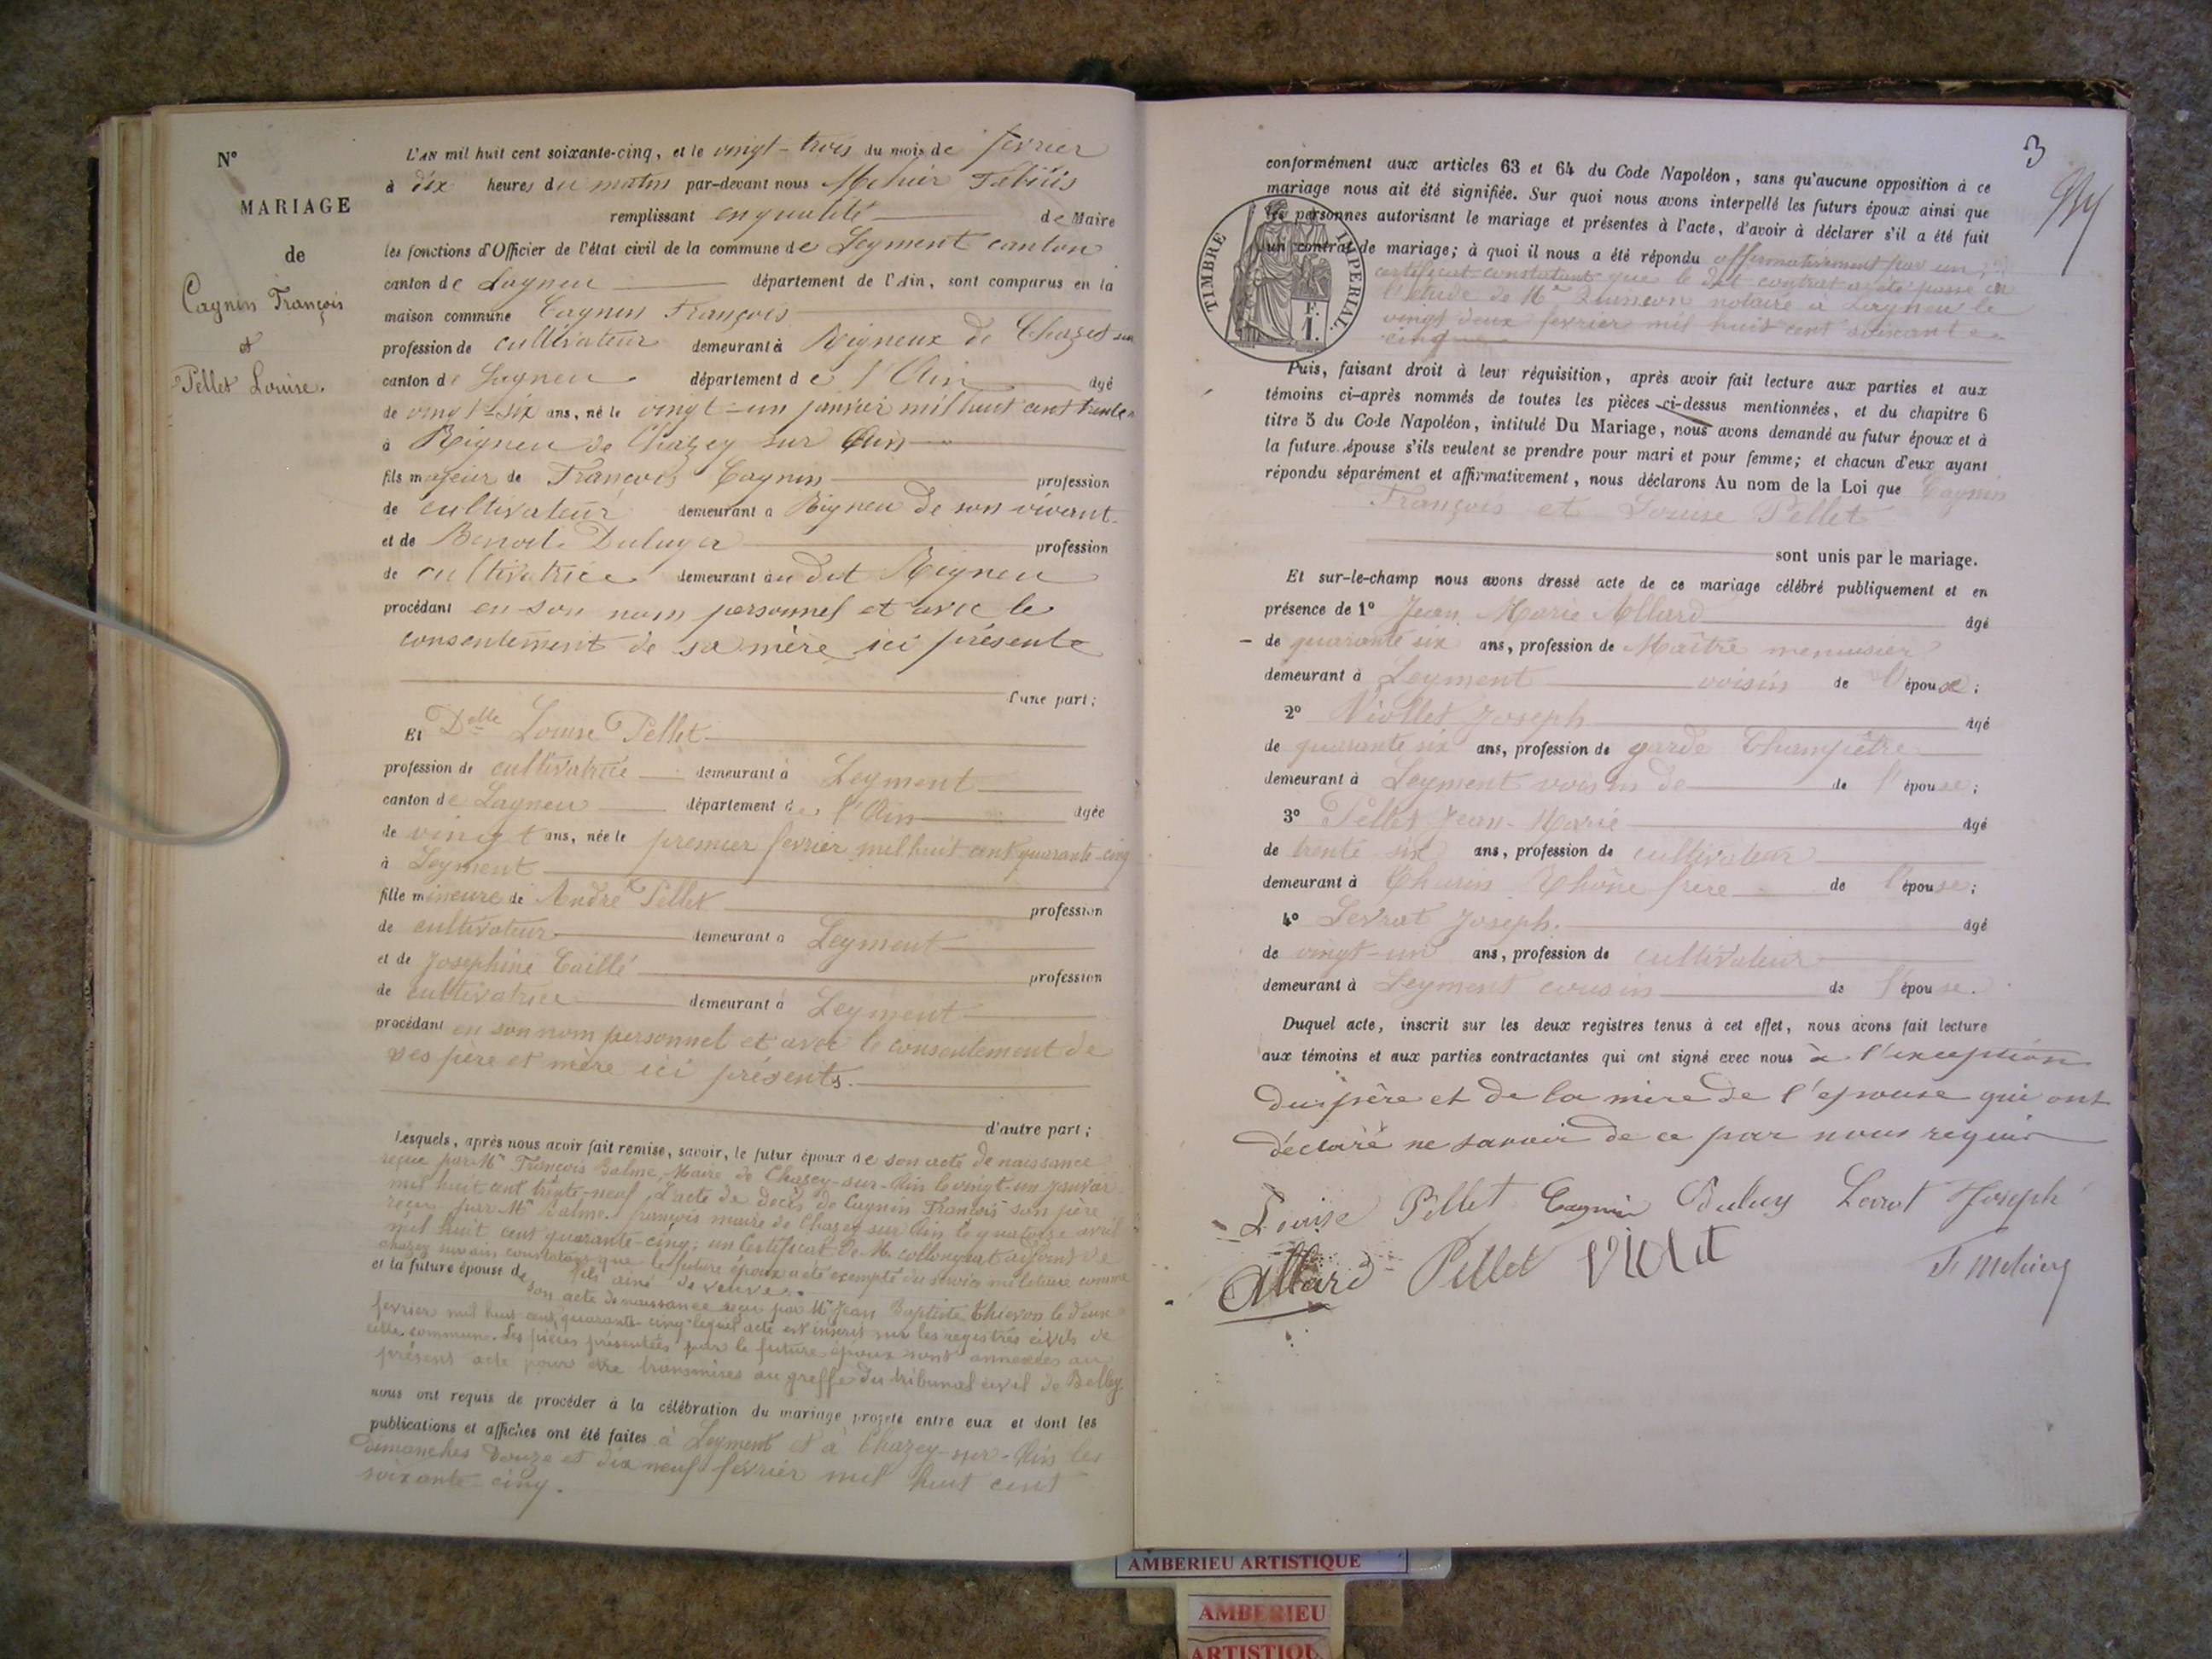 N°
MARIAGE
de
Cagnin François
et
Pellet Louise.
L'AN mil huit cent soixante-cinq, et le vingt-trois du mois de fevrier
à dix heures du matin par-devant nous Mehier
remplissant en qualité de Maire
les fonctions d'Officier de l'état civil de la commune de Leyment canton
canton de Lagneu département de l'Ain, sont comparus en la
maison commune Cagnin François
profession de cultivateur demeurant à Rigneux de Chazey sur
canton de Lagneu département de l'Ain âgé
de vingt-six ans, né le vingt-un janvier mil huit cent trente
à Rigneu de Chazey sur Ain
fils majeur de François Cagnin profession
de cultivateur demeurant à Rigneu de son vivant
et de profession
de cultivatrice demeurant au dit Rigneu
procédant en son nom personnel et avec le
consentement de sa mère ici présente
d'une part;
Et Delle Louise Pellet
profession de cultivatrice demeurant à Leyment
canton de Lagneu département de l'Ain âgée
de vingt ans, née le premier fevrier mil huit cent quarante-cinq
à Leyment
fille mineure de André Pellet profession
de cultivateur demeurant à Leyment
et de Josephine Caillé profession
de cultivatrice demeurant à Leyment
procédant en son nom personnel et avec le consentement de
ses père et mère ici présents.
d'autre part;
Lesquels, après nous avoir fait remise, savoir, le futur époux de son acte de naissance
reçue par Mr François Balme, Maire de Chazey-sur-Ain le vingt-un janvier
mil huit cent trente-neuf, L'acte de décès de Cagnin François son père
reçu par Mr Balme François maire de Chazey sur Ain le quatorze avril
mil huit cent quarante-cinq; un Certificat de M. adjoint de
chazey sur ain constatant que le future époux a été exempté du service militaire comme
fils ainé de veuve.
et la future épouse de son acte de naissance reçu par Mr Jean Baptiste Thievon le deux
fevrier mil huit cent quarante-cinq lequel acte est inscrit sur les registres civils de
cette commune. Les pièces présentées par le future époux sont annexées au
présent acte pour être transmises au greffe du tribunal civil de Belley
nous ont requis de procéder à la célébration du mariage projeté entre eux et dont les
publications et affiches ont été faites à Leyment et à Chazey-sur-Ain les
dimanches douze et dix neuf fevrier mil huit cent
soixante-cinq.
3
conformément aux articles 63 et 64 du Code Napoléon, sans qu'aucune opposition à ce
mariage nous ait été signifiée. Sur quoi nous avons interpellé les futurs époux ainsi que
les personnes autorisant le mariage et présentes à l'acte, d'avoir à déclarer s'il a été fait
un contrat de mariage; à quoi il nous a été répondu affirmativement par un
certificat constatant que le dit contrat a été passé en
l'étude de Me notaire à Lagneu le
vingt deux fevrier mil huit cent soixante
cinq
TIMBRE IMPÉRIAL
F.
1.
Puis, faisant droit à leur réquisition, après avoir fait lecture aux parties et aux
témoins ci-après nommés de toutes les pièces ci-dessus mentionnées, et du chapitre 6
titre 5 du Code Napoléon, intitulé Du Mariage, nous avons demandé au futur époux et à
la future épouse s'ils veulent se prendre pour mari et pour femme; et chacun d'eux ayant
répondu séparément et affirmativement, nous déclarons Au nom de la Loi que Cagnin
François et Louise Pellet
sont unis par le mariage.
Et sur-le-champ nous avons dressé acte de ce mariage célébré publiquement et en
présence de 1° Jean Marie Allard âgé
de quarante six ans, profession de Maître menuisier
demeurant à Leyment voisin de l'épouse;
2° Viollet Joseph âgé
de quarante six ans, profession de garde Champêtre
demeurant à Leyment voisin de de l'épouse;
3° Pellet Jean-Marie âgé
de trente six ans, profession de cultivateur
demeurant à Rhône frère de l'épouse;
4° Levrat Joseph. âgé
de vingt-un ans, profession de cultivateur
demeurant à Leyment cousin de l'épouse.
Duquel acte, inscrit sur les deux registres tenus à cet effet, nous avons fait lecture
aux témoins et aux parties contractantes qui ont signé avec nous à l'exception
du père et de la mère de l'epouse qui ont
déclaré ne savoir de ce par nous requis
Louise Pellet Cagnin Duluy Levrat Joseph
Allard Pellet Violet F Mehier
AMBERIEU ARTISTIQUE
AMBERIEU
ARTISTIQU